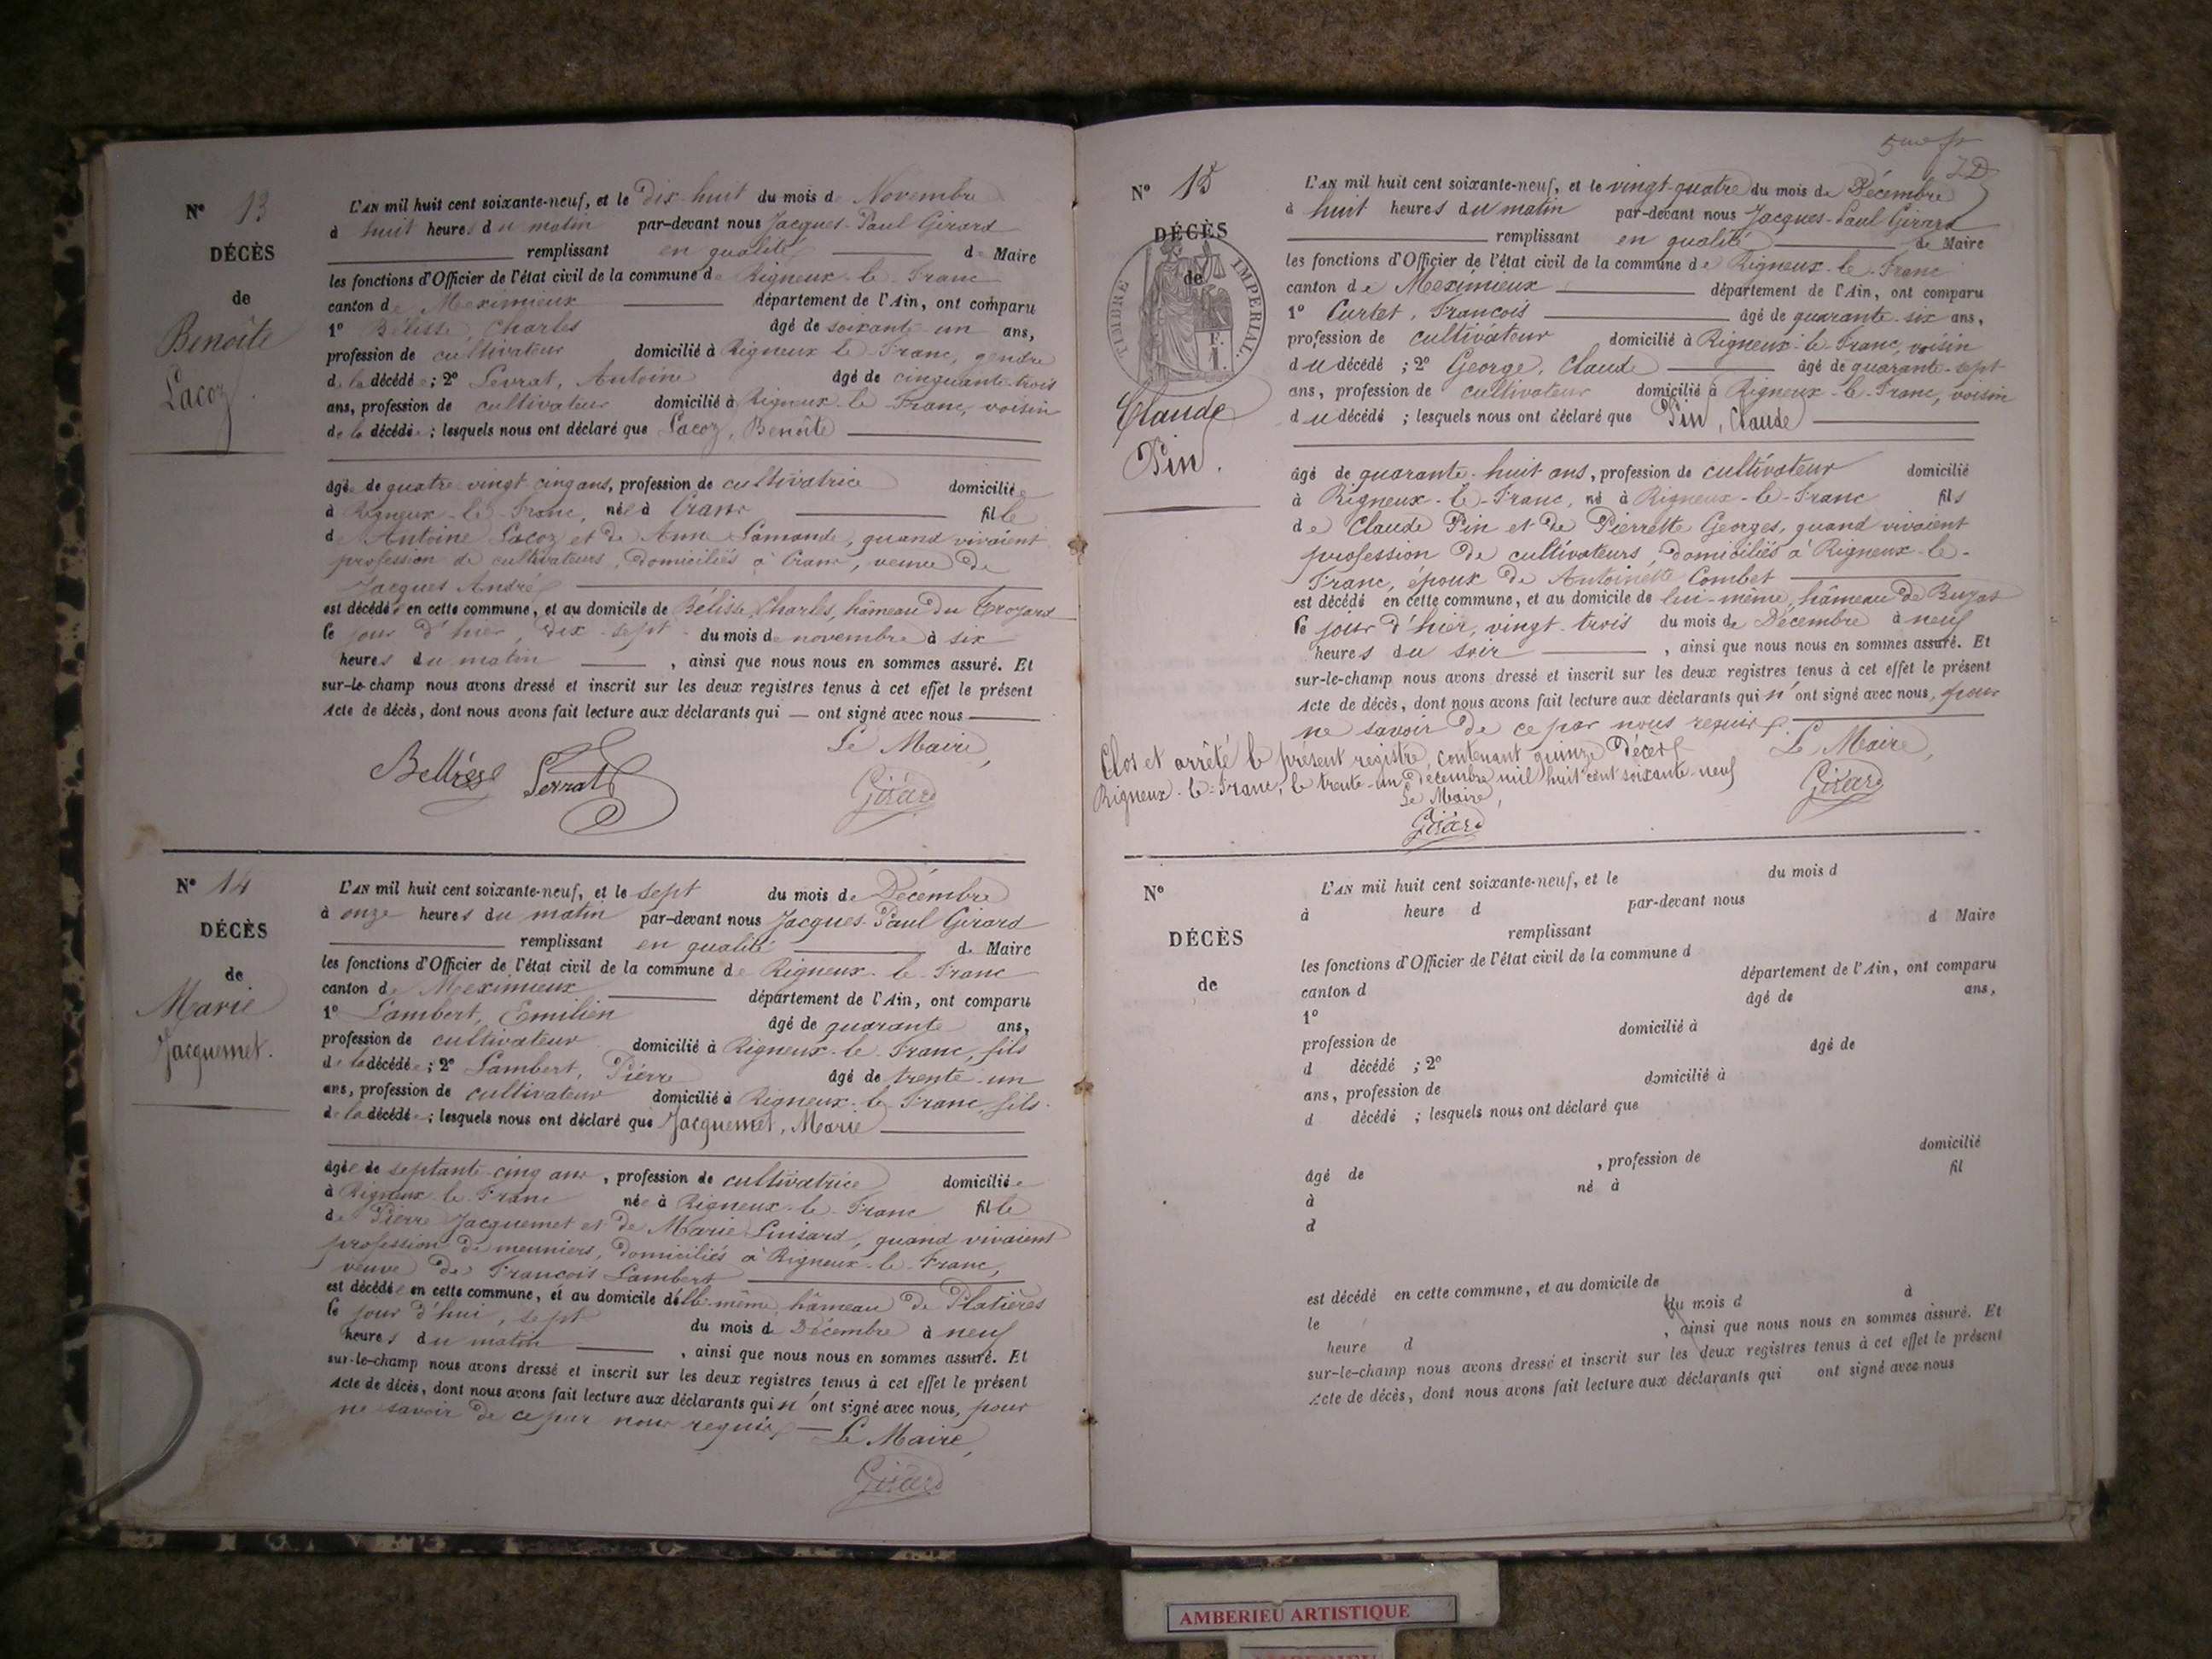 N° 13
DÉCÈS
de
Benoîte
Lacoz.
L'AN mil huit cent soixante-neuf, et le Dix-huit du mois de Novembre
à huit heures du matin par-devant nous Jacques-Paul Girard
remplissant en qualité de Maire
les fonctions d'Officier de l'état civil de la commune de Rigneux-le-Franc
canton de Meximieux département de l'Ain, ont comparu
1° Béliss Charles âgé de soixante-un ans,
profession de cultivateur domicilié à Rigneux-le-Franc, gendre
de la décédée; 2° Serrat, Antoine âgé de cinquante-trois
ans, profession de cultivateur domicilié à Rigneux-le-Franc, voisin
de la décédée; lesquels nous ont déclaré que Lacoz, Benoîte
âgée de quatre-vingt-cinq ans, profession de cultivatrice domiciliée
à Rigneux-le-Franc, née à Crans fille
d'Antoine Lacoz et de Anne Lamonde, quand vivaient
profession de cultivateurs, domiciliés à Crans, veuve de
Jacques André
est décédée en cette commune, et au domicile de Béliss, Charles, hâmeau du Trozard
le jour d'hier, dix-sept du mois de novembre à six
heures du matin, ainsi que nous nous en sommes assuré. Et
sur-le-champ nous avons dressé et inscrit sur les deux registres tenus à cet effet le présent
Acte de décès, dont nous avons fait lecture aux déclarants qui — ont signé avec nous
Le Maire,
Serrat
Girard
N° 14
DÉCÈS
de
Marie
Jacquemet.
L'AN mil huit cent soixante-neuf, et le sept du mois de Décembre
à onze heures du matin par-devant nous Jacques-Paul Girard
remplissant en qualité de Maire
les fonctions d'Officier de l'état civil de la commune de Rigneux-le-Franc
canton de Meximieux département de l'Ain, ont comparu
1° Lambert, Emilien âgé de quarante ans,
profession de cultivateur domicilié à Rigneux-le-Franc, fils
de la décédée; 2° Lambert, Pierre âgé de trente-un
ans, profession de cultivateur domicilié à Rigneux-le-Franc, fils
de la décédée; lesquels nous ont déclaré que Jacquemet, Marie
âgée de septante-cinq ans, profession de cultivatrice domiciliée
à Rigneux-le-Franc née à Rigneux-le-Franc fille
de Pierre Jacquemet et de Marie Luisard, quand vivaient
profession de meuniers, domiciliés à Rigneux-le-Franc,
veuve de François Lambert
est décédée en cette commune, et au domicile d'elle-même, hâmeau de Platières
le jour d'hui, sept du mois de Décembre à neuf
heures du matin, ainsi que nous nous en sommes assuré. Et
sur-le-champ nous avons dressé et inscrit sur les deux registres tenus à cet effet le présent
Acte de décès, dont nous avons fait lecture aux déclarants qui n'ont signé avec nous, pour
ne savoir de ce par nous requis. Le Maire,
Girard
N° 15
DÉCÈS
de
TIMBRE IMPERIAL.
Claude
Pin.
L'AN mil huit cent soixante-neuf, et le vingt-quatre du mois de Décembre
à huit heures du matin par-devant nous Jacques-Paul Girard
remplissant en qualité de Maire
les fonctions d'Officier de l'état civil de la commune de Rigneux-le-Franc
canton de Meximieux département de l'Ain, ont comparu
1° Curtet, François âgé de quarante-six ans,
profession de cultivateur domicilié à Rigneux-le-Franc, voisin
du décédé; 2° George, Claude âgé de quarante-sept
ans, profession de cultivateur domicilié à Rigneux-le-Franc, voisin
du décédé; lesquels nous ont déclaré que Pin, Claude
âgé de quarante-huit ans, profession de cultivateur domicilié
à Rigneux-le-Franc, né à Rigneux-le-Franc fils
de Claude Pin et de Pierrette Georges, quand vivaient
profession de cultivateurs, domiciliés à Rigneux-le-
Franc, époux de Antoinette Combet
est décédé en cette commune, et au domicile de lui-même, hâmeau de Buzas
le jour d'hier, vingt-trois du mois de Décembre à neuf
heures du soir, ainsi que nous nous en sommes assuré. Et
sur-le-champ nous avons dressé et inscrit sur les deux registres tenus à cet effet le présent
Acte de décès, dont nous avons fait lecture aux déclarants qui n'ont signé avec nous, pour
ne savoir de ce par nous requis. Le Maire,
Girard
Clos et arrêté le présent registre, contenant quinze décès
Rigneux-le-Franc, le trente-un décembre mil huit cent soixante-neuf
Le Maire,
Girard
N°
DÉCÈS
de
L'AN mil huit cent soixante-neuf, et le du mois d
à heure d par-devant nous
remplissant d Maire
les fonctions d'Officier de l'état civil de la commune d
canton d département de l'Ain, ont comparu
1° âgé de ans,
profession de domicilié à
d décédé ; 2° âgé de
ans, profession de domicilié à
d décédé ; lesquels nous ont déclaré que
âgé de , profession de domicilié
à né à fil
d
est décédé en cette commune, et au domicile de
le du mois d à
heure d , ainsi que nous nous en sommes assuré. Et
sur-le-champ nous avons dressé et inscrit sur les deux registres tenus à cet effet le présent
Acte de décès, dont nous avons fait lecture aux déclarants qui ont signé avec nous
AMBERIEU ARTISTIQUE